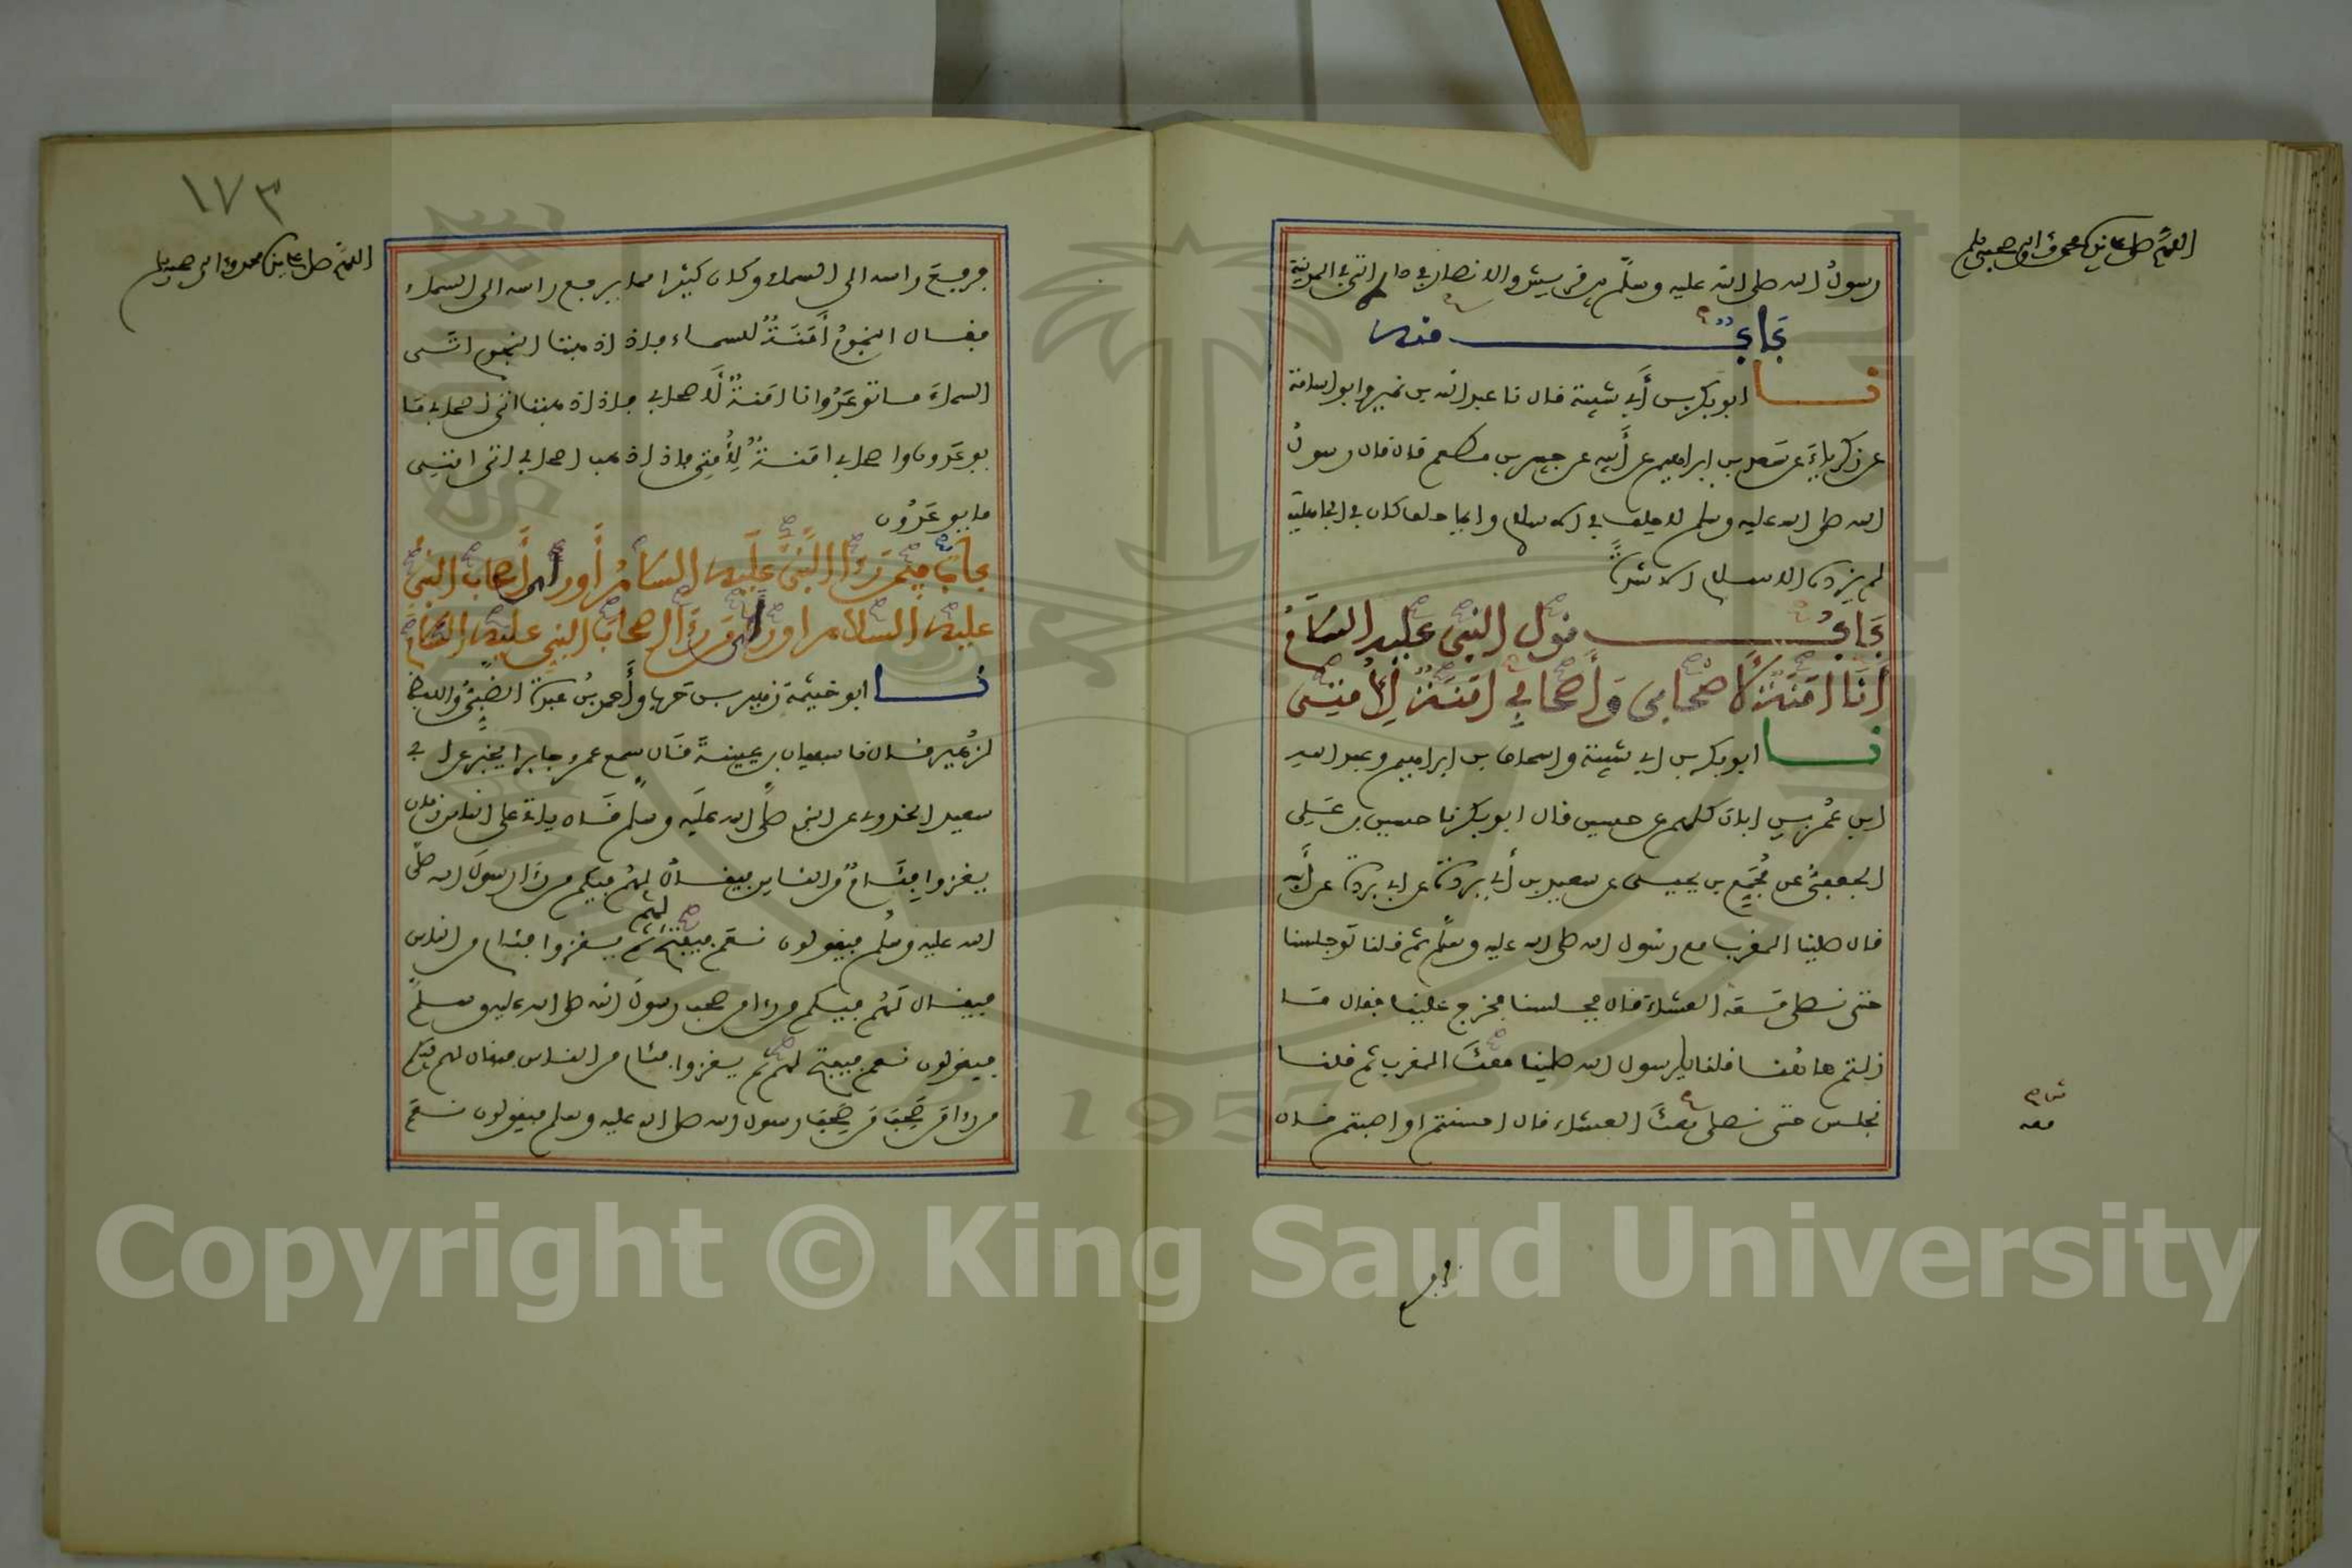 اللهم صل على سيدنا محمد وآله وصحبه وسلم
رسول الله صلى الله عليه وسلم بين قريش والانصار في داره التي بالمدينة
باب منه
نا ابو بكر بن أبي شيبة قال نا عبد الله بن نمير وابو اسامة
عن زكرياء عن سعد بن ابراهيم عن أبيه عن جبير بن مطعم قال قال رسول
الله صلى الله عليه وسلم لا حلف في الاسلام وايما حلف كان في الجاهلية
لم يزده الاسلام الا شدة
باب قول النبي عليه السلام
أنا امنة لاصحابي وأصحابي امنة لأمتي
نا ابو بكر بن ابي شيبة واسحاق بن ابراهيم وعبد الله
ابن عمر بن ابان كلهم عن حسين قال ابو بكر نا حسين بن علي
الجعفي عن مجمع بن يحيى عن سعيد بن أبي بردة عن ابي بردة عن أبيه
قال صلينا المغرب مع رسول الله صلى الله عليه وسلم ثم قلنا لو جلسنا
حتى نصلي معه العشاء قال فجلسنا فخرج علينا فقال ما
زلتم هاهنا قلنا يا رسول الله صلينا معك المغرب ثم قلنا
نجلس حتى نصلي معك العشاء قال احسنتم او اصبتم قال
معه
١٧٣
اللهم صل على سيدنا محمد وآله وصحبه وسلم
فرفع راسه الى السماء وكان كثيرا مما يرفع راسه الى السماء
فقال النجوم أمنة للسماء فاذا ذهبت النجوم اتى
السماء ما توعد وانا امنة لاصحابي فاذا ذهبت اتى اصحابي ما
يوعدون واصحابي امنة لأمتي فاذا ذهب اصحابي اتى امتي
ما يوعدون
باب فيمن رءا النبي عليه السلام أو رءا أصحاب النبي
عليه السلام او رءا من رءا اصحاب النبي عليه السلام
نا ابو خيثمة زهير بن حرب وأحمد بن عبدة الضبي واللفظ
لزهير قال نا سفيان بن عيينة قال سمع عمرو جابرا يخبر عن ابي
سعيد الخدري عن النبي صلى الله عليه وسلم قال ياتي على الناس زمان
يغزوا فئام من الناس فيقال لهم فيكم من رءا رسول الله صلى
الله عليه وسلم فيقولون نعم فيفتح لهم ثم يغزوا فئام من الناس
فيقال لهم فيكم من رءا من صحب رسول الله صلى الله عليه وسلم
فيقولون نعم فيفتح لهم ثم يغزوا فئام من الناس فيقال لهم فيكم
من رءا من صحب من صحب رسول الله صلى الله عليه وسلم فيقولون نعم
1957
Copyright © King Saud University